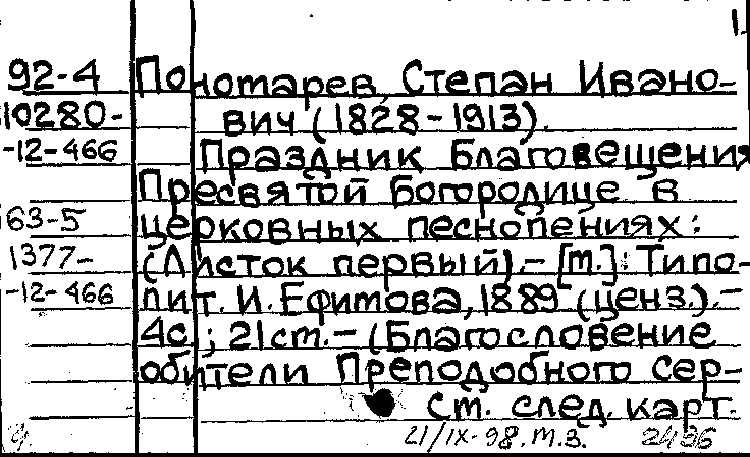 1
92-4 Пономарев, Степан Ивано-
10280- вич (1828-1913).
-12-466 Праздник Благовещения
Пресвятой Богородице в
63-5 церковных песнопениях:
1377- (Листок первый).- [М.]: Типо-
-12-466 лит. И. Ефимова, 1889 (ценз.).-
4с.; 21см.- (Благословение
обители Преподобного Сер-
См. след. карт.
21/IX-98. М.З. 2436